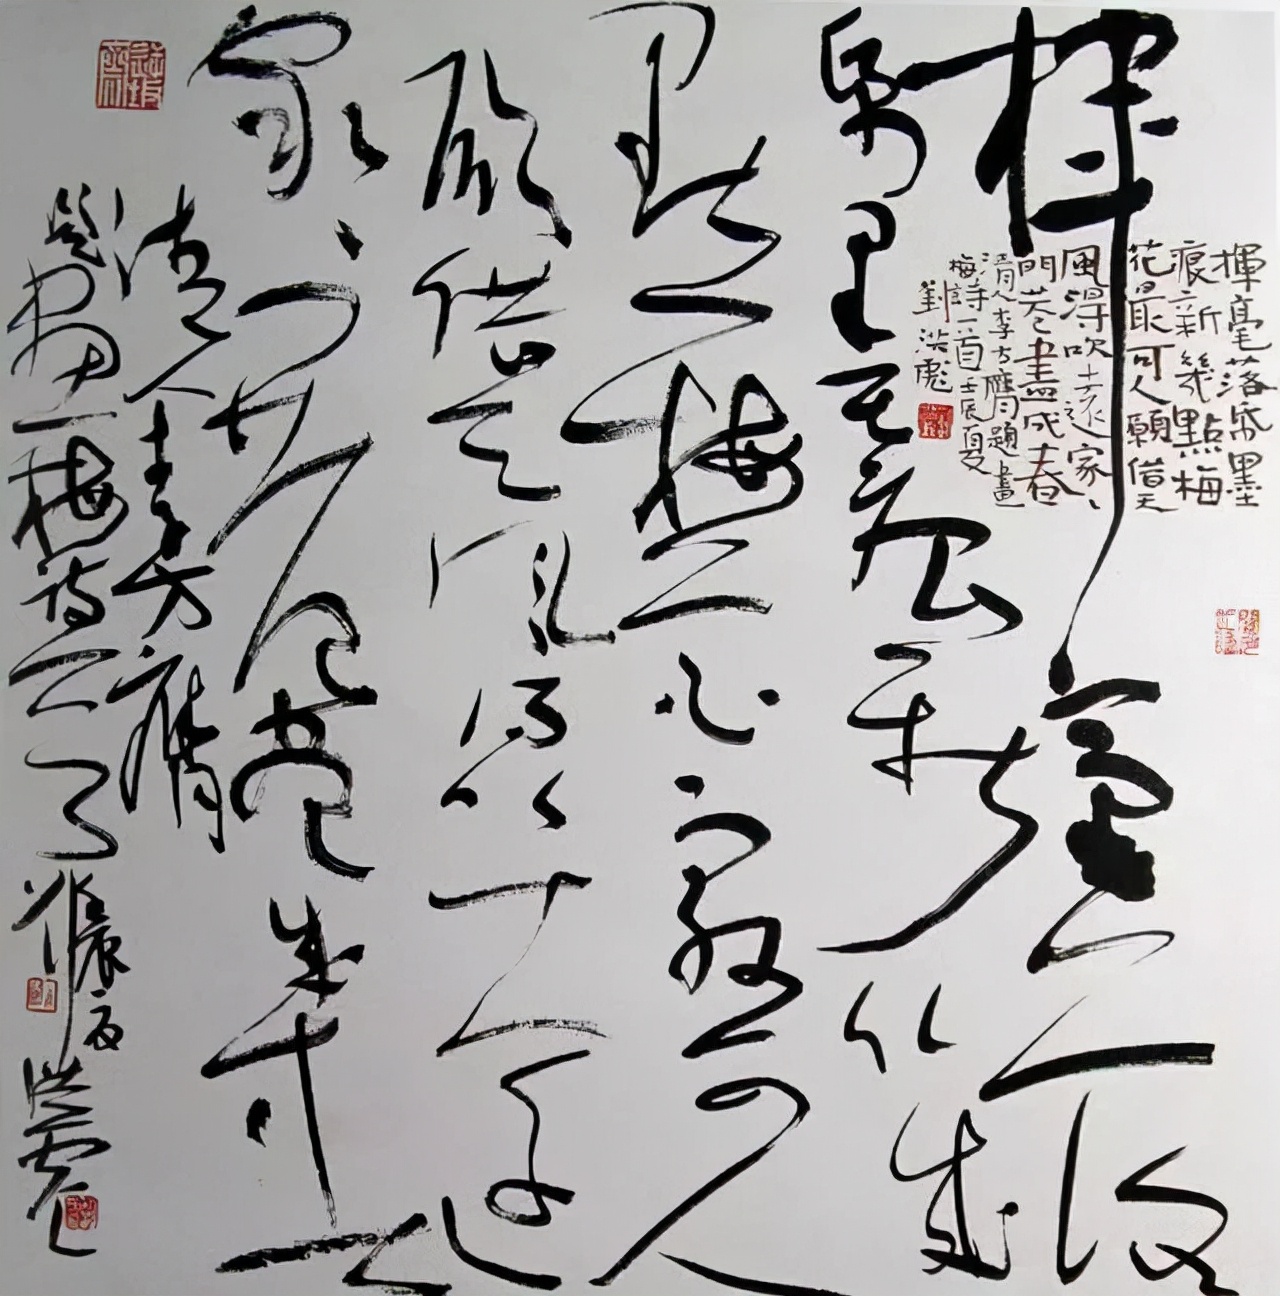 揮毫落
帋墨痕新幾
點梅花最可人
願借天風得吹遠
家〻門巷盡成春
清人李方膺
題畫梅詩一首壬辰夏洪彪
揮毫落帋墨
痕新幾點梅
花最可人願借天
風得吹遠家〻
門巷盡成春
清人李方膺題畫
梅詩一首壬辰夏
劉洪彪